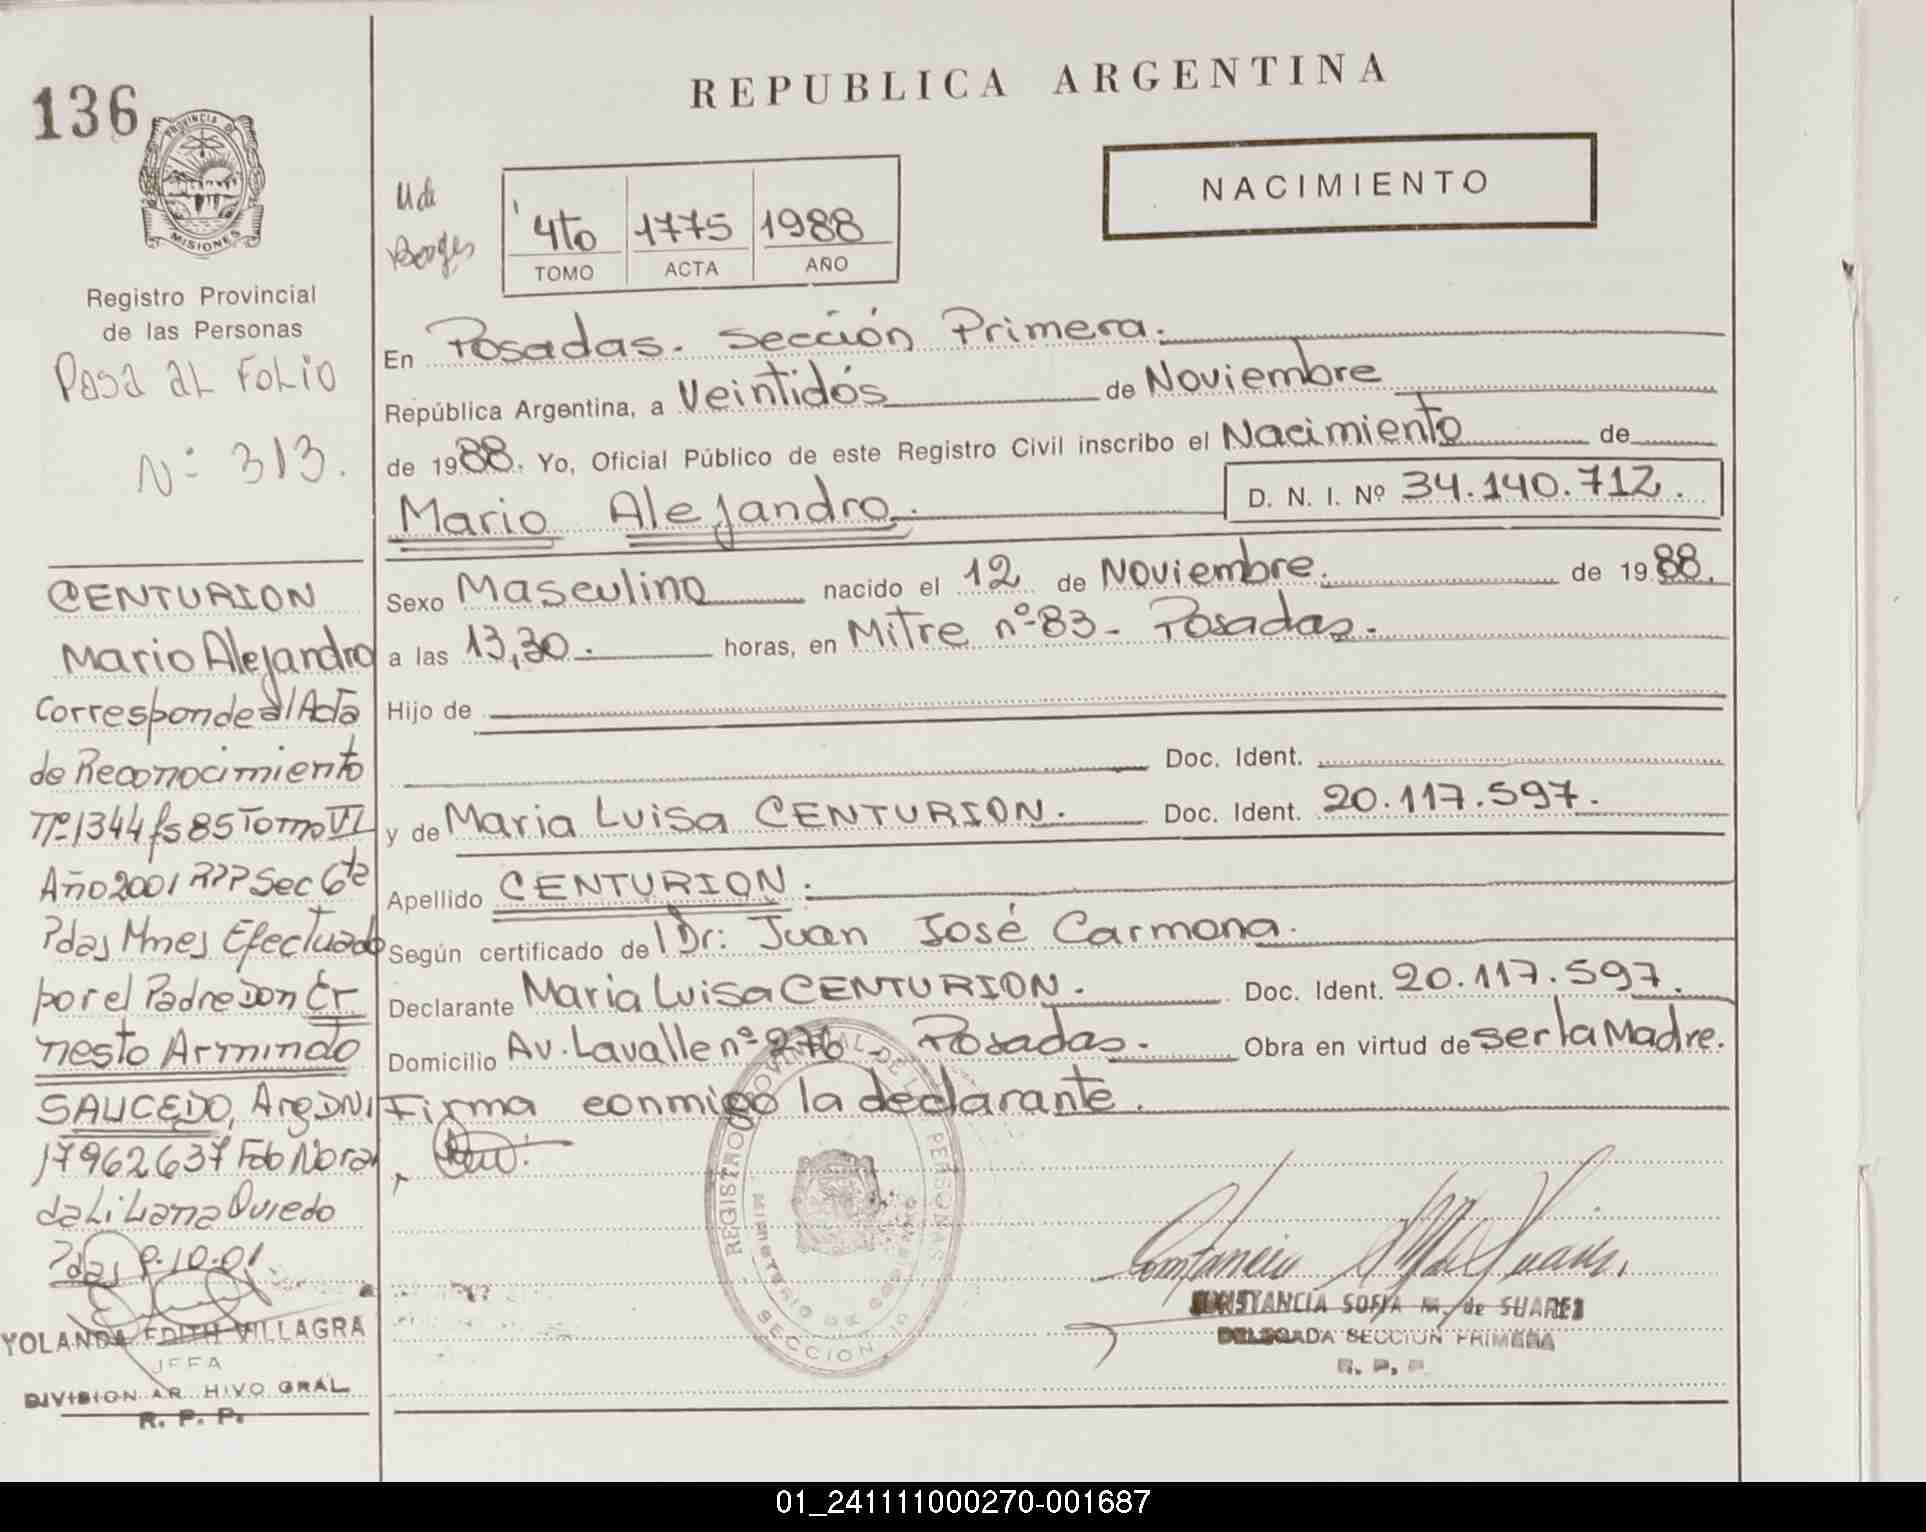 136
PROVINCIA DE
MISIONES
Registro Provincial
de las Personas
Pasa al Folio
Nº 313.
CENTURION
Mario Alejandro
Corresponde al Acta
de Reconocimiento
Nº 1344 fs 85 Tomo VI
Año 2001 RPP Sec 6ta
Pdas Mnes Efectuado
por el Padre Don Er
nesto Armindo
SAUCEDO, Arg DNI
17962637 Fdo Nora
da Liliana Oviedo
Pdas 9-10-01
YOLANDA EDITH VILLAGRA
JEFA
DIVISION AR HIVO GRAL
R. P. P.
REPUBLICA ARGENTINA
NACIMIENTO
4to 1775 1988
TOMO ACTA AÑO
En Posadas. Sección Primera.
República Argentina, a Veintidós de Noviembre
de 1988. Yo, Oficial Público de este Registro Civil inscribo el Nacimiento de
Mario Alejandro. D. N. I. Nº 34.140.712.
Sexo Masculino nacido el 12 de Noviembre. de 1988.
a las 13,30. horas, en Mitre nº 83 - Posadas.
Hijo de
Doc. Ident.
y de Maria Luisa CENTURION. Doc. Ident. 20.117.597.
Apellido CENTURION.
Según certificado del Dr: Juan José Carmona.
Declarante Maria Luisa CENTURION. Doc. Ident. 20.117.597.
Domicilio Av. Lavalle nº 276 - Posadas. Obra en virtud de ser la Madre.
Firma conmigo la declarante.
REGISTRO PROVINCIAL DE LAS PERSONAS
MINISTERIO DE GOBIERNO
SECCION
CONSTANCIA SOFIA M. de SUAREZ
DELEGADA SECCION PRIMERA
R. P. P.
01_241111000270-001687